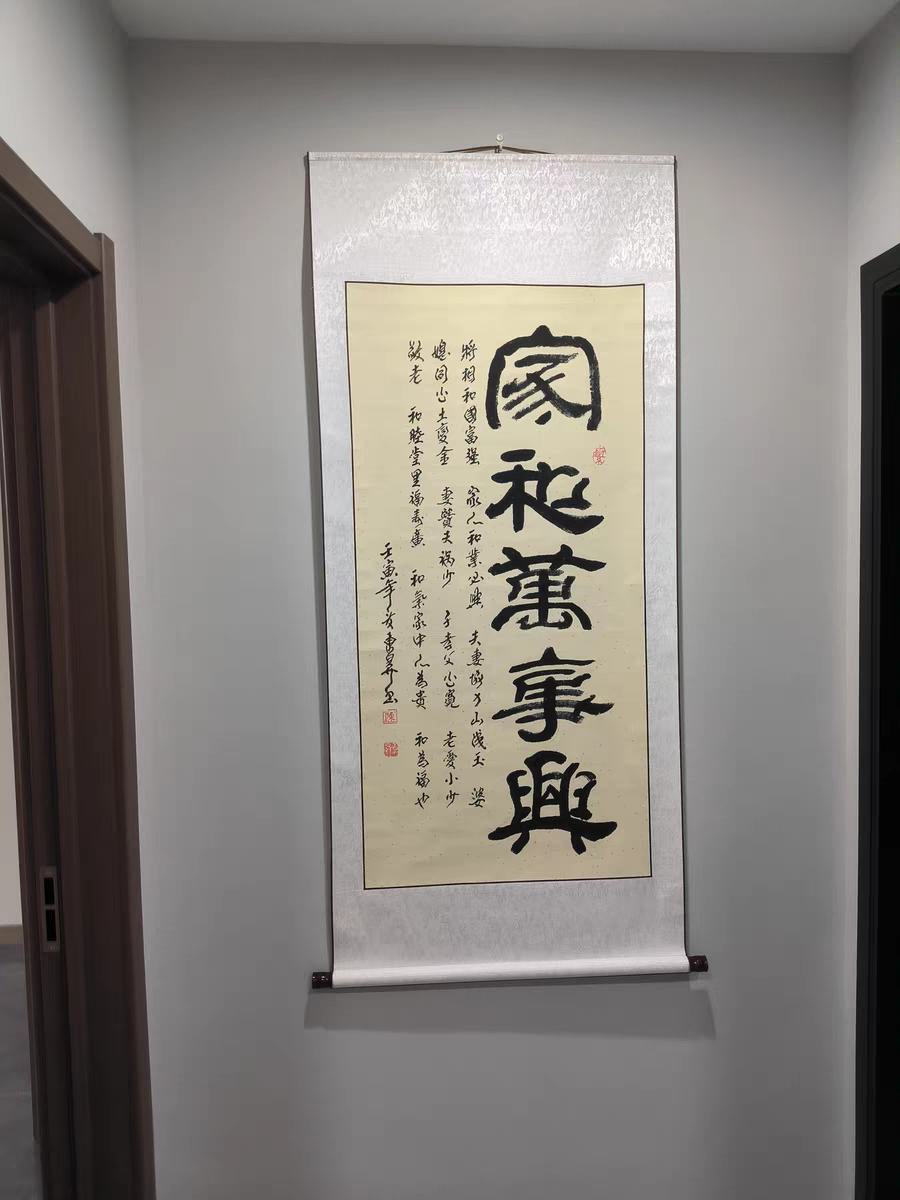 家和萬事興
將相和國富强 家人和業必興 夫妻協力山成玉 婆
媳同心土變金 妻賢夫禍少 子孝父心寬 老愛小少
敬老 和睦堂里福壽廣 和氣家中人為貴 和為福也
壬寅年